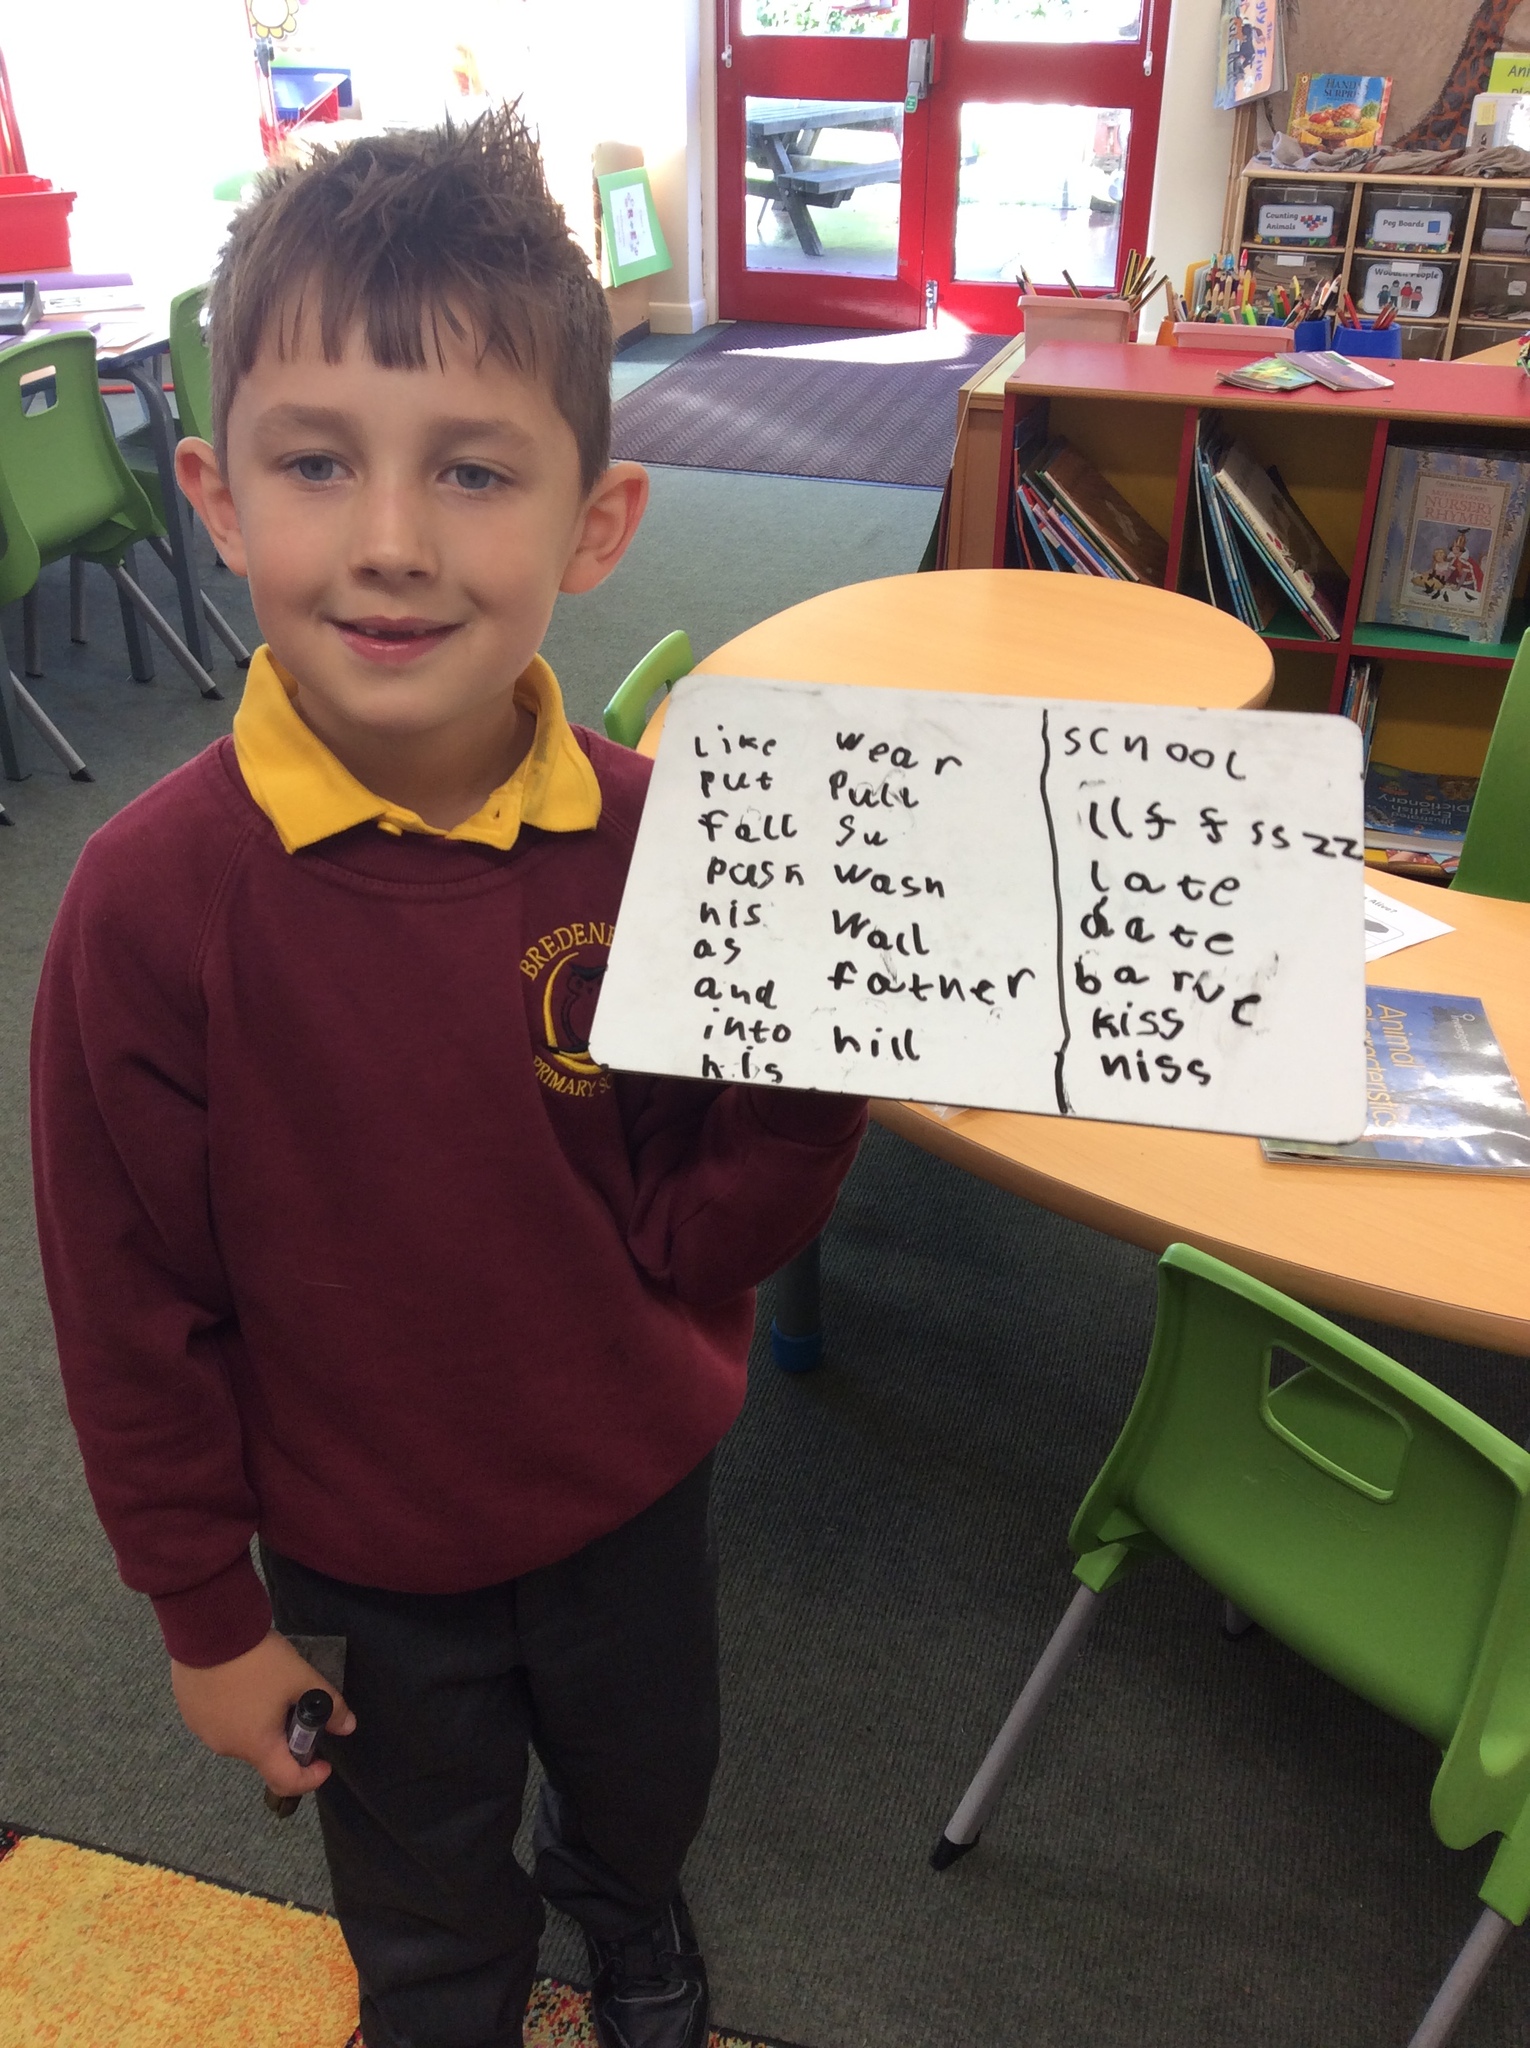 like wear
put pull
fall su
push wash
his wall
as
and father
into hill
his
school
ll ff ss zz
late
date
barve
kiss
hiss
BREDENB
PRIMARY SC
Counting Animals
Peg Boards
Wooden People
HANDA'S SURPRISE
NURSERY RHYMES
Illustrated English Dictionary
Animal
Alive?